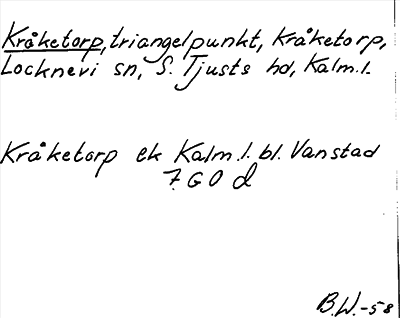 Kråketorp, triangelpunkt, Kråketorp,
Locknevi sn, S. Tjusts hd, Kalm.l.
Kråketorp ek Kalm.l. bl. Vanstad
7 G 0 d
B.W.-58